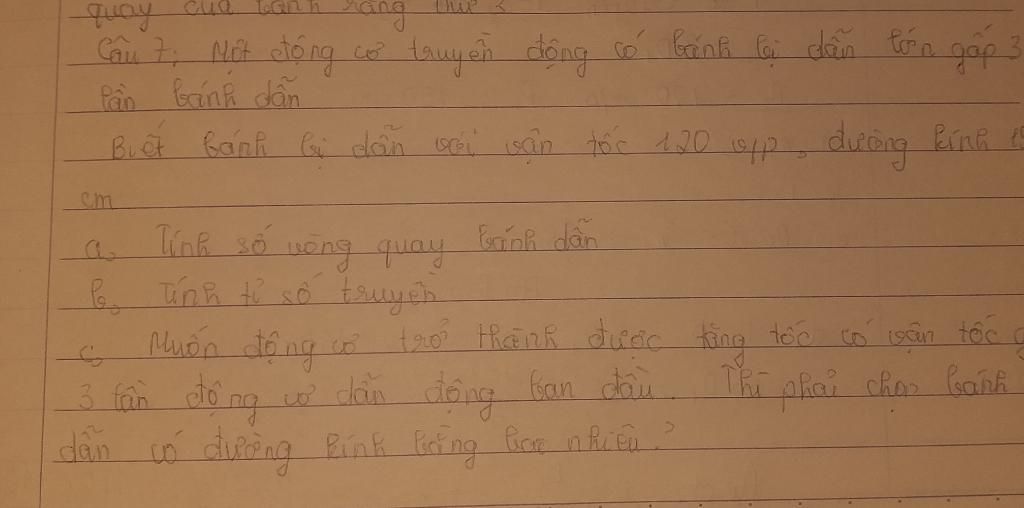 quay của bánh răng thứ 2
Câu 7: Một động cơ truyền động có bánh bị dẫn lớn gấp 3
lần bánh dẫn
Biết bánh bị dẫn với vận tốc 120 v/p, đường kính
cm
a, Tính số vòng quay bánh dẫn
b, Tính tỉ số truyền
c, Muốn động cơ trở thành được tăng tốc có vận tốc
3 lần động cơ dẫn động ban đầu. Thì phải chọn bánh
dẫn có đường kính bằng bao nhiêu?